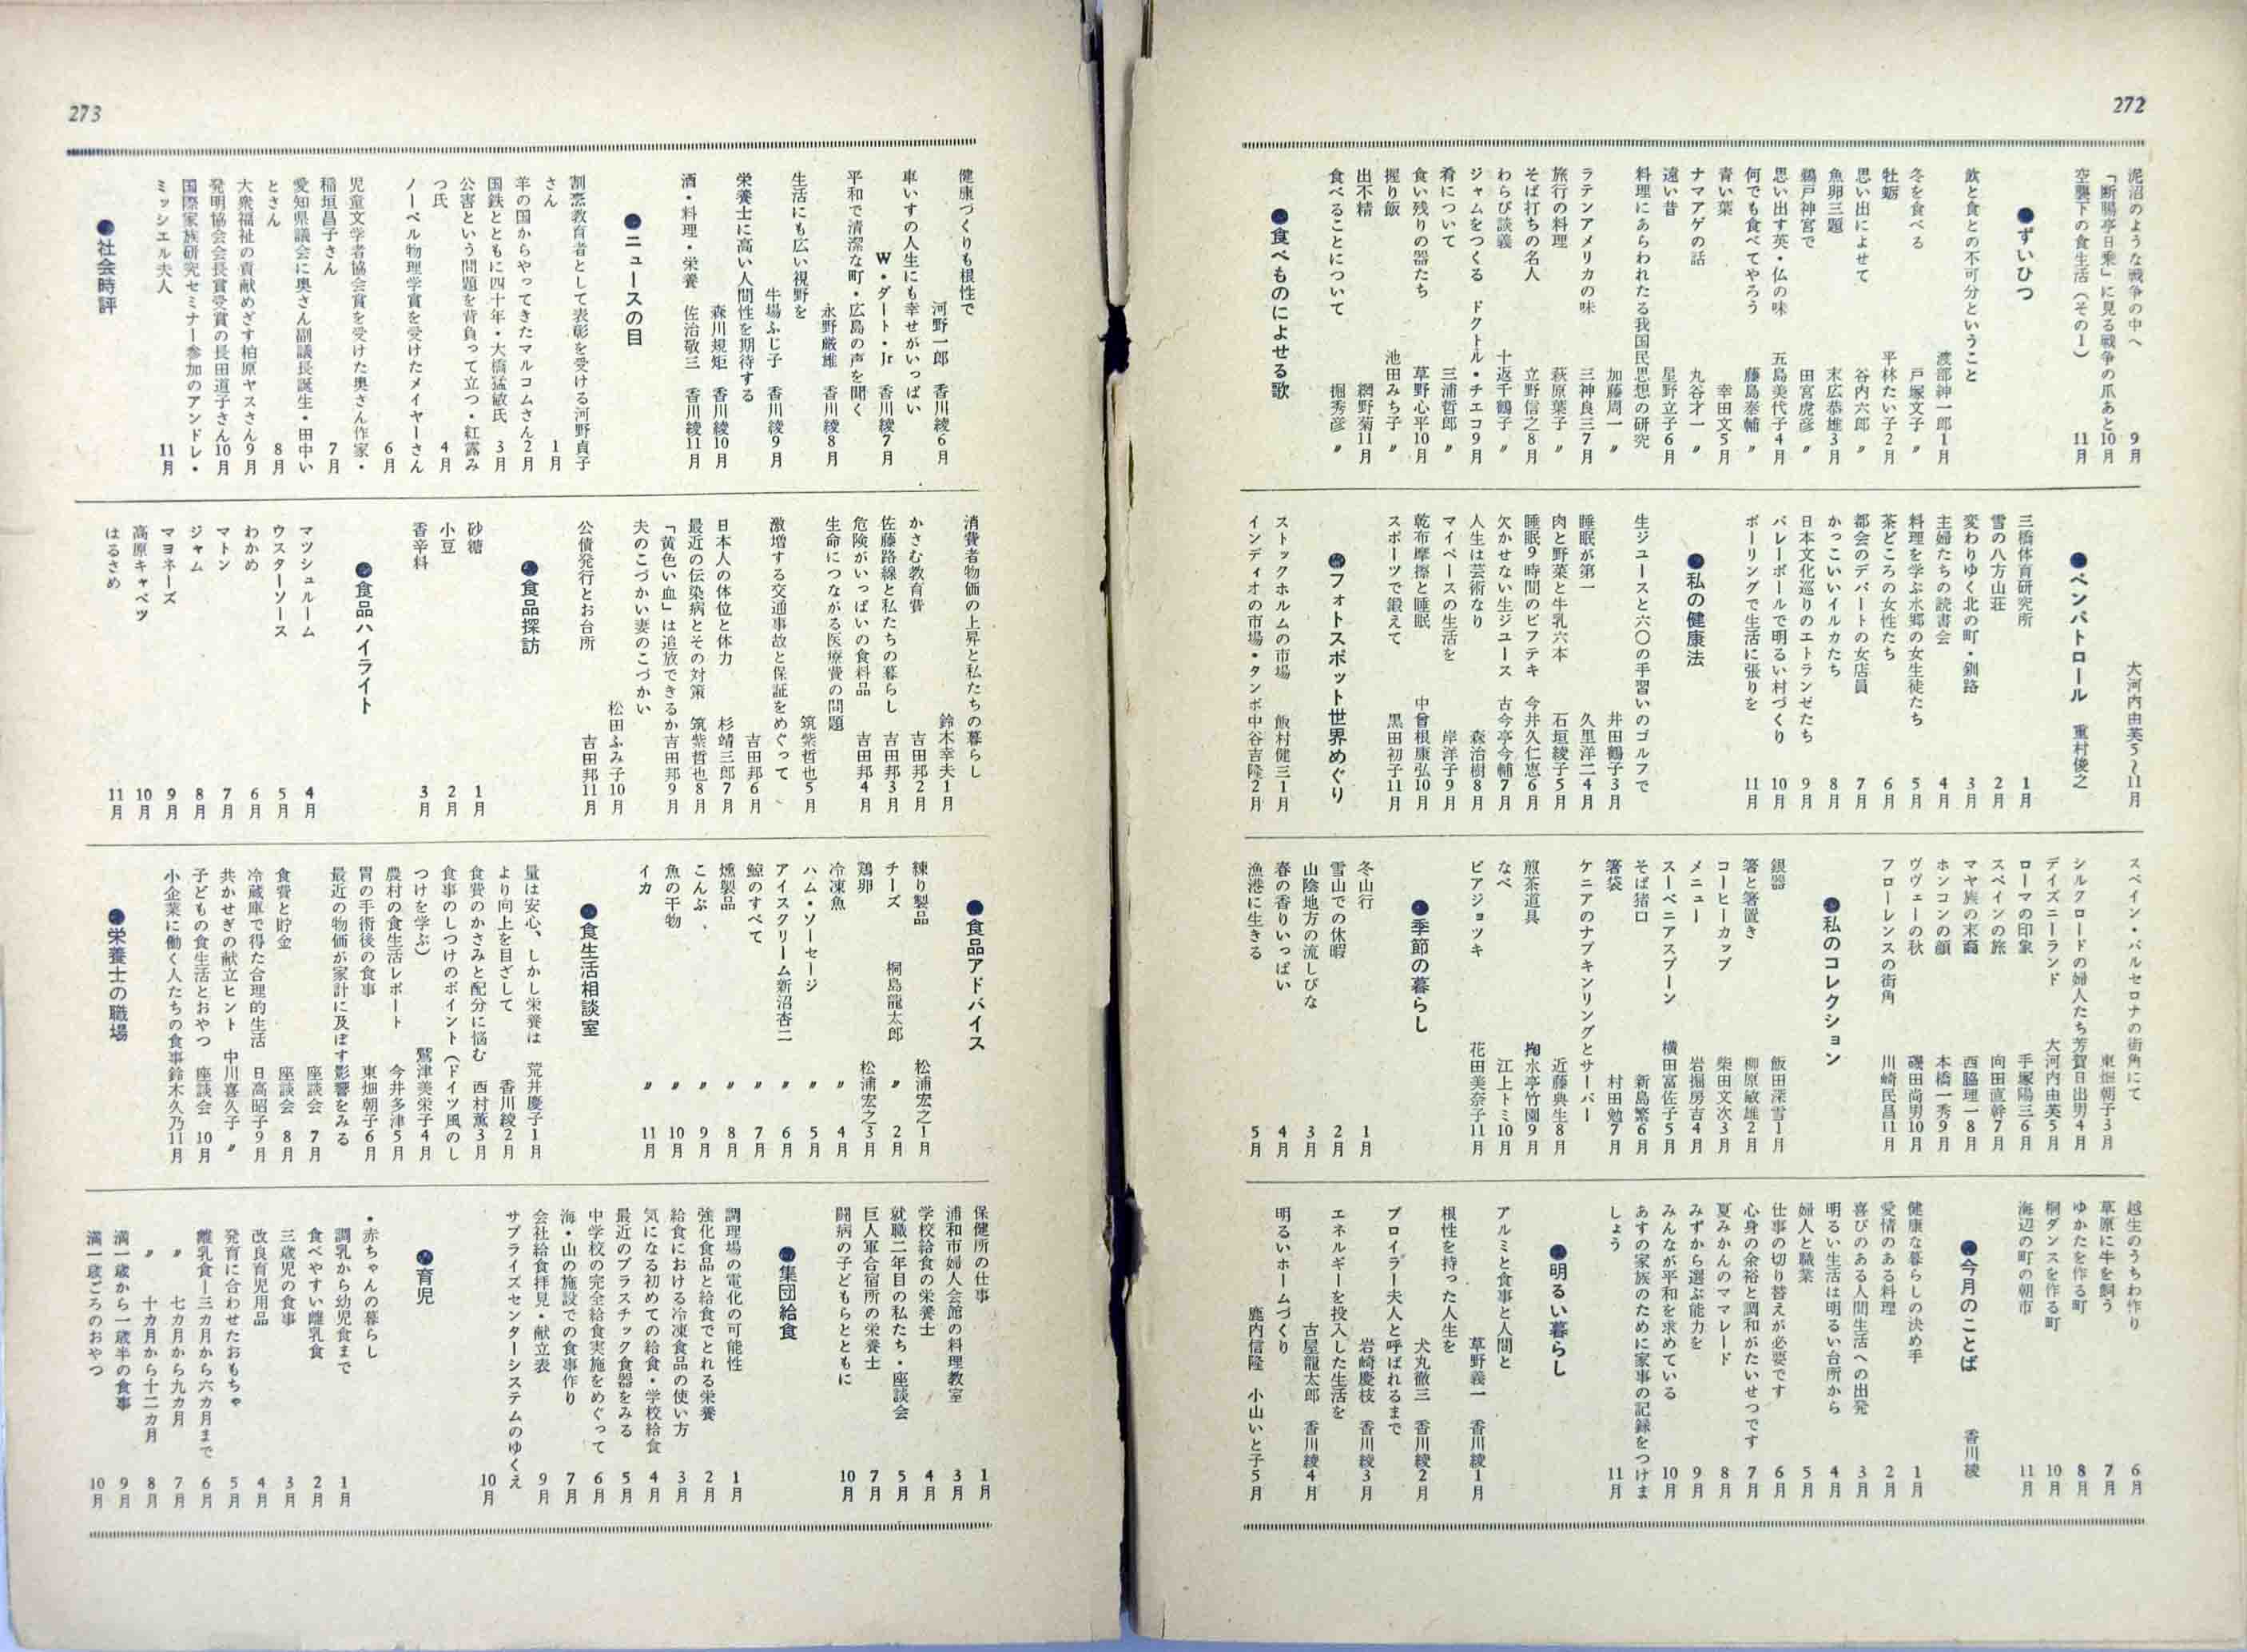 272
泥沼のような戦争の中へ 9月
「断腸亭日乗」に見る戦争の爪あと10月
空襲下の食生活(その1) 11月
●ずいひつ
飲と食との不可分ということ
渡部紳一郎1月
冬を食べる 戸塚文子 〃
牡蛎 平林たい子2月
思い出によせて 谷内六郎 〃
魚卵三題 末広恭雄3月
鵜戸神宮で 田宮虎彦 〃
思い出す英・仏の味 五島美代子4月
何でも食べてやろう 藤島泰輔 〃
青い葉 幸田文5月
ナマアゲの話 丸谷才一 〃
遠い昔 星野立子6月
料理にあらわれたる我国民思想の研究
加藤周一 〃
ラテンアメリカの味 三神良三7月
旅行の料理 萩原葉子 〃
そば打ちの名人 立野信之8月
わらび談義 十返千鶴子 〃
ジャムをつくる ドクトル・チエコ9月
肴について 三浦哲郎 〃
食い残りの器たち 草野心平10月
握り飯 池田みち子 〃
出不精 網野菊11月
食べることについて 堀秀彦 〃
●食べものによせる歌
大河内由芙5〜11月
●ペンパトロール 重村俊之
三橋体育研究所 1月
雪の八方山荘 2月
変わりゆく北の町・釧路 3月
主婦たちの読書会 4月
料理を学ぶ水郷の女生徒たち 5月
茶どころの女性たち 6月
都会のデパートの女店員 7月
かっこいいイルカたち 8月
日本文化巡りのエトランゼたち 9月
バレーボールで明るい村づくり 10月
ボーリングで生活に張りを 11月
●私の健康法
生ジュースと六〇の手習いのゴルフで
井田鶴子3月
睡眠が第一 久里洋二4月
肉と野菜と牛乳六本 石垣綾子5月
睡眠9時間のビフテキ 今井久仁恵6月
欠かせない生ジュース 古今亭今輔7月
人生は芸術なり 森治樹8月
マイペースの生活を 岸洋子9月
乾布摩擦と睡眠 中曾根康弘10月
スポーツで鍛えて 黒田初子11月
●フォトスポット世界めぐり
ストックホルムの市場 飯村健三1月
インディオの市場・タンボ中谷吉隆2月
スペイン・バルセロナの街角にて
東畑朝子3月
シルクロードの婦人たち芳賀日出男4月
デイズニーランド 大河内由芙5月
ローマの印象 手塚陽三6月
スペインの旅 向田直幹7月
マヤ族の末裔 西脇理一8月
ホンコンの顔 本橋一秀9月
ヴヴェーの秋 磯田尚男10月
フローレンスの街角 川崎民昌11月
●私のコレクション
銀器 飯田深雪1月
箸と箸置き 柳原敏雄2月
コーヒーカップ 柴田文次3月
メニュー 岩堀房吉4月
スーベニアスプーン 横田富佐子5月
そば猪口 新島繁6月
箸袋 村田勉7月
ケニアのナプキンリングとサーバー
近藤典生8月
煎茶道具 掬水亭竹園9月
なべ 江上トミ10月
ピアジョッキ 花田美奈子11月
●季節の暮らし
冬山行 1月
雪山での休暇 2月
山陰地方の流しびな 3月
春の香りいっぱい 4月
漁港に生きる 5月
越生のうちわ作り 6月
草原に牛を飼う 7月
ゆかたを作る町 8月
桐ダンスを作る町 10月
海辺の町の朝市 11月
●今月のことば 香川綾
健康な暮らしの決め手 1月
愛情のある料理 2月
喜びのある人間生活への出発 3月
明るい生活は明るい台所から 4月
婦人と職業 5月
仕事の切り替えが必要です 6月
心身の余裕と調和がたいせつです 7月
夏みかんのママレード 8月
みずから選ぶ能力を 9月
みんなが平和を求めている 10月
あすの家族のために家事の記録をつけま
しょう 11月
●明るい暮らし
アルミと食事と人間と
草野義一 香川綾1月
根性を持った人生を
犬丸徹三 香川綾2月
ブロイラー夫人と呼ばれるまで
岩崎慶枝 香川綾3月
エネルギーを投入した生活を
古屋龍太郎 香川綾4月
明るいホームづくり
鹿内信隆 小山いと子5月
273
健康づくりも根性で
河野一郎 香川綾6月
車いすの人生にも幸せがいっぱい
W・ダート・Jr 香川綾7月
平和で清潔な町・広島の声を聞く
永野厳雄 香川綾8月
生活にも広い視野を
牛場ふじ子 香川綾9月
栄養士に高い人間性を期待する
森川規矩 香川綾10月
酒・料理・栄養 佐治敬三 香川綾11月
●ニュースの目
割烹教育者として表彰を受ける河野貞子
さん 1月
羊の国からやってきたマルコムさん2月
国鉄とともに四十年・大橋猛敏氏 3月
公害という問題を背負って立つ・紅露み
つ氏 4月
ノーベル物理学賞を受けたメイヤーさん
6月
児童文学者協会賞を受けた奥さん作家・
稲垣昌子さん 7月
愛知県議会に奥さん副議長誕生・田中い
とさん 8月
大衆福祉の貢献めざす柏原ヤスさん9月
発明協会会長賞受賞の長田道子さん10月
国際家族研究セミナー参加のアンドレ・
ミッシエル夫人 11月
●社会時評
消費者物価の上昇と私たちの暮らし
鈴木幸夫1月
かさむ教育費 吉田邦2月
佐藤路線と私たちの暮らし 吉田邦3月
危険がいっぱいの食料品 吉田邦4月
生命につながる医療費の問題
筑紫哲也5月
激増する交通事故と保証をめぐって
吉田邦6月
日本人の体位と体力 杉靖三郎7月
最近の伝染病とその対策 筑紫哲也8月
「黄色い血」は追放できるか吉田邦9月
夫のこづかい妻のこづかい
松田ふみ子10月
公債発行とお台所 吉田邦11月
●食品探訪
砂糖 1月
小豆 2月
香辛料 3月
●食品ハイライト
マッシュルーム 4月
ウスターソース 5月
わかめ 6月
マトン 7月
ジャム 8月
マヨネーズ 9月
高原キャベツ 10月
はるさめ 11月
●食品アドバイス
練り製品 松浦宏之1月
チーズ 桐島龍太郎 〃 2月
鶏卵 松浦宏之3月
冷凍魚 〃 4月
ハム・ソーセージ 〃 5月
アイスクリーム新沼杏二 〃 6月
鯨のすべて 〃 7月
燻製品 〃 8月
こんぶ 〃 9月
魚の干物 〃 10月
イカ 〃 11月
●食生活相談室
量は安心、しかし栄養は 荒井慶子1月
より向上を目ざして 香川綾2月
食費のかさみと配分に悩む 西村薫3月
食事のしつけのポイント(ドイツ風のし
つけを学ぶ) 鷲津美栄子4月
農村の食生活レポート 今井多津5月
胃の手術後の食事 東畑朝子6月
最近の物価が家計に及ぼす影響をみる
座談会 7月
食費と貯金 座談会 8月
冷蔵庫で得た合理的生活 日高昭子9月
共かせぎの献立ヒント 中川喜久子 〃
子どもの食生活とおやつ 座談会 10月
小企業に働く人たちの食事鈴木久乃11月
●栄養士の職場
保健所の仕事 1月
浦和市婦人会館の料理教室 3月
学校給食の栄養士 4月
就職二年目の私たち・座談会 5月
巨人軍合宿所の栄養士 7月
闘病の子どもらとともに 10月
●集団給食
調理場の電化の可能性 1月
強化食品と給食でとれる栄養 2月
給食における冷凍食品の使い方 3月
気になる初めての給食・学校給食 4月
最近のプラスチック食器をみる 5月
中学校の完全給食実施をめぐって 6月
海・山の施設での食事作り 7月
会社給食拝見・献立表 9月
サプライズセンターシステムのゆくえ
10月
●育児
・赤ちゃんの暮らし
調乳から幼児食まで 1月
食べやすい離乳食 2月
三歳児の食事 3月
改良育児用品 4月
発育に合わせたおもちゃ 5月
離乳食―三カ月から六カ月まで 6月
〃 七カ月から九カ月 7月
〃 十カ月から十二カ月 8月
満一歳から一歳半の食事 9月
満一歳ごろのおやつ 10月